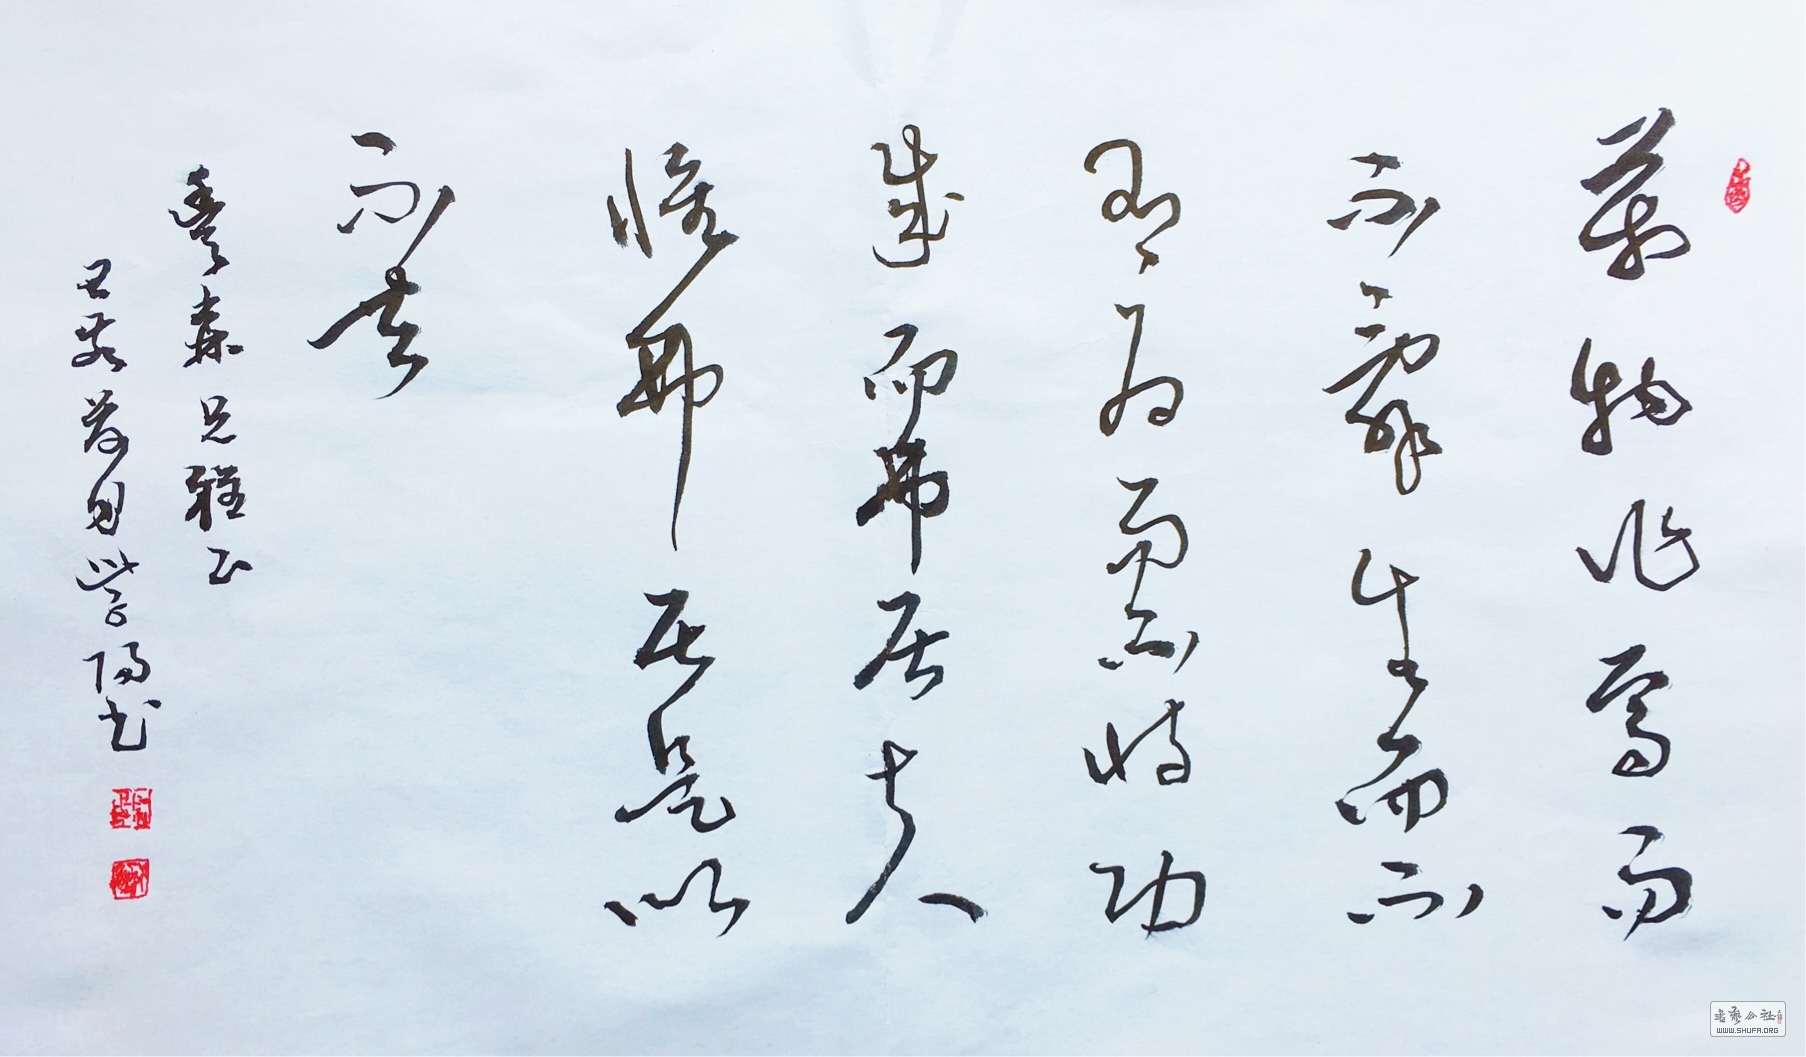 萬物作焉而
不辭生而不
有為而不恃功
成而弗居夫
惟弗居是以
不去
森兄雅正
學陽書
書藝公社
WWW.SHUFA.ORG